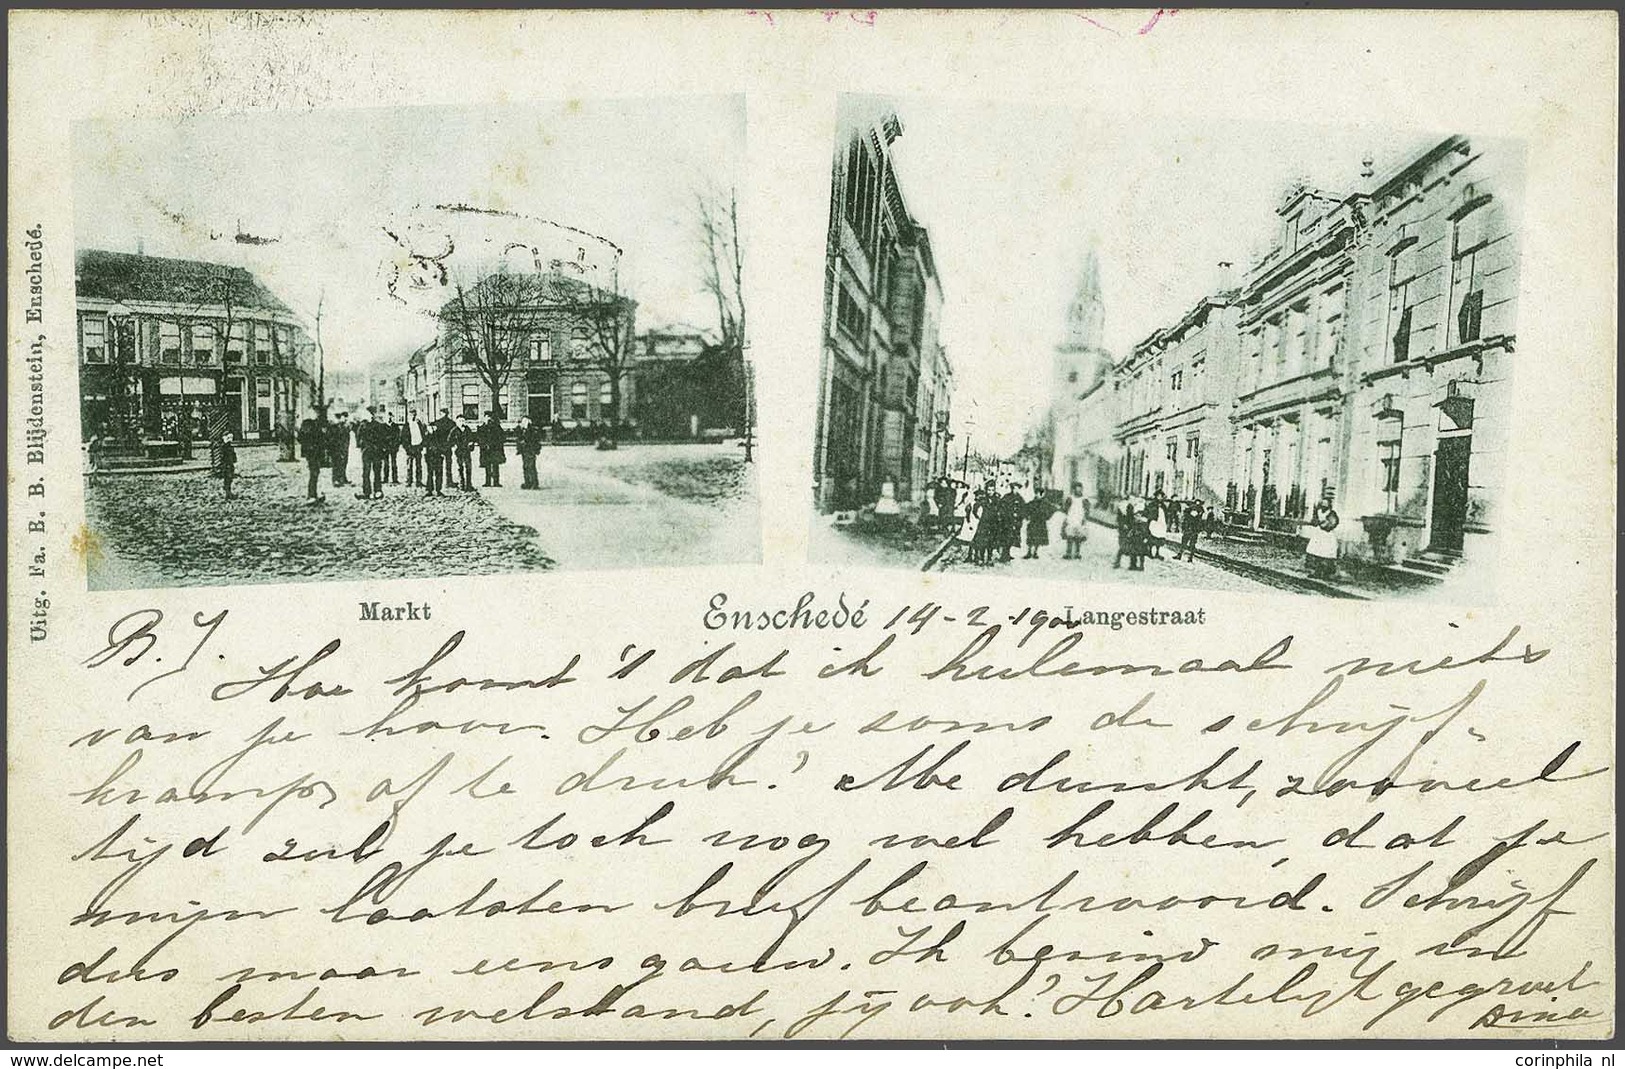 Uitg. Fa. B. B. Blijdenstein, Enschedé.
Markt
Enschedé
14-2-1900
Langestraat
B. J.
Hoe komt 't dat ik helemaal niets
van je hoor. Heb je soms de schrijf-
kramp of te druk? Me dunkt, zooveel
tijd zul je toch nog wel hebben, dat je
mijn laatsten brief beantwoord. Schrijf
dus maar eens gauw. Ik bevind mij in
den besten welstand, jij ook? Hartelijk gegroet
Dina
corinphila nl